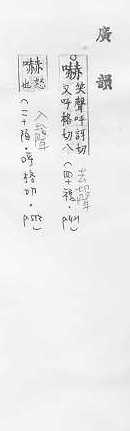 廣韻
嚇 笑聲呼訝切
又呼格切八(四十禡·p.424)
去聲
嚇 怒
也(二十陌·呼格切·p.512)
入聲